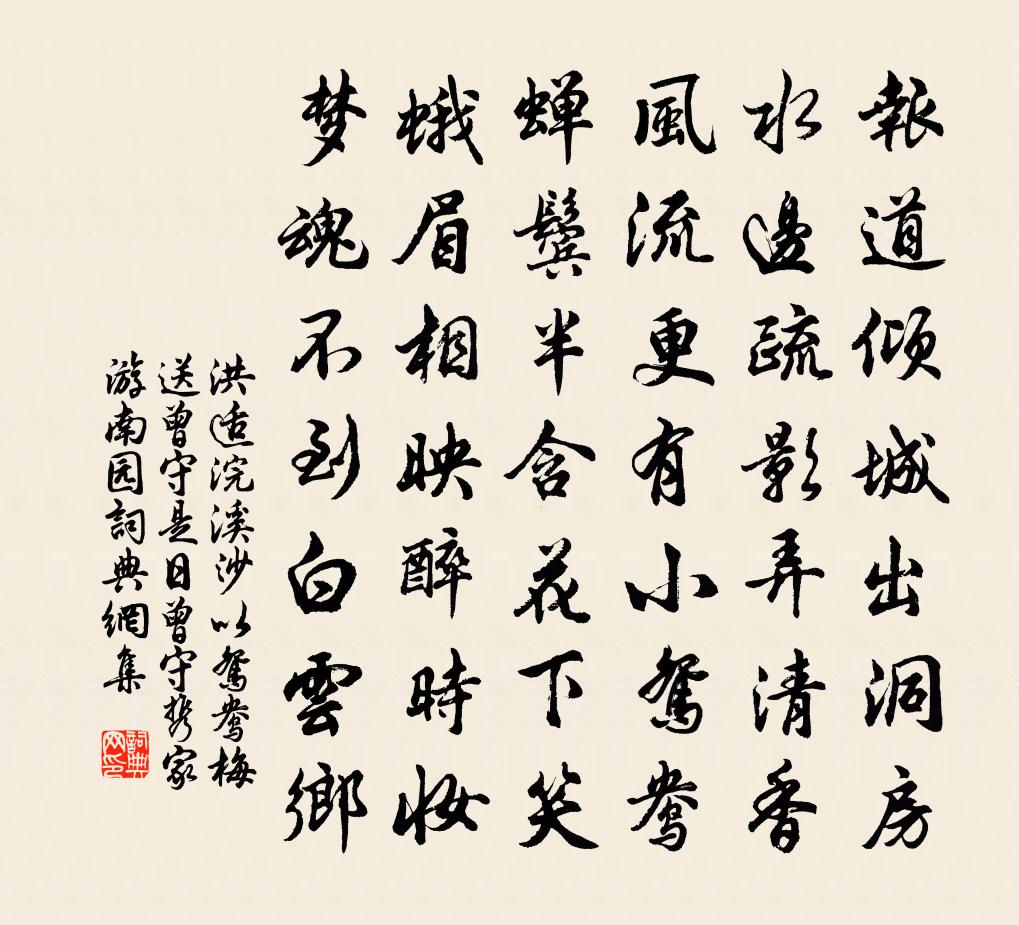 報道傾城出洞房
水邊疏影弄清香
風流更有小鴛鴦
蝉鬢半含花下笑
蛾眉相映醉時妆
梦魂不到白雲鄉
洪适浣溪沙以鴛鴦梅
送曾守是日曾守携家
游南园詞典網集
詞典
网印